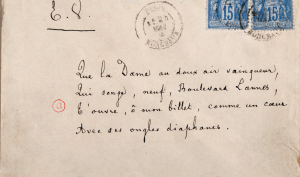 E. V.
15 15
Que la Dame au doux air vainqueur,
Qui songe, neuf, Boulevard Lannes,
T'ouvre, ô mon billet, comme un cœur
Avec ses ongles diaphanes.